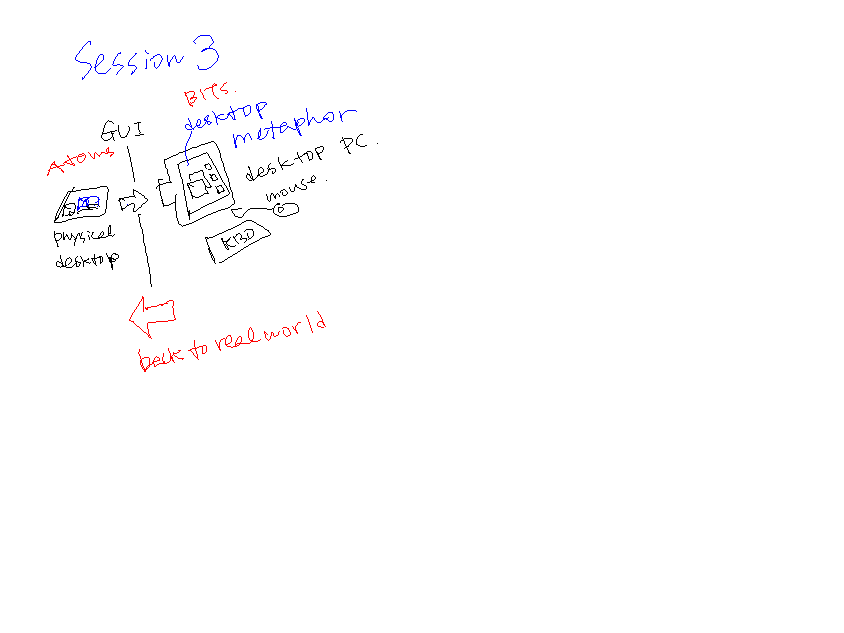 Session 3
BITs.
desktop
metaphor
GUI
Atoms
desktop PC.
mouse.
KBD
physical
desktop
back to real world